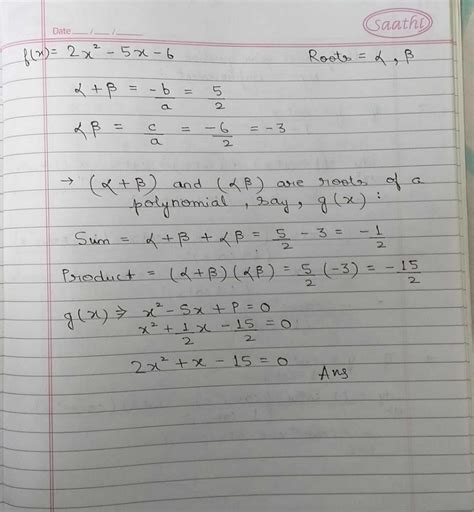 Date __/__/__ Saathi
f(x) = 2x² - 5x - 6 Roots = α, β
α + β = -b/a = 5/2
αβ = c/a = -6/2 = -3
→ (α + β) and (αβ) are roots of a
polynomial, say, g(x) :
Sum = α + β + αβ = 5/2 - 3 = -1/2
Product = (α+β)(αβ) = 5/2 (-3) = -15/2
g(x) ⇒ x² - Sx + P = 0
x² + 1/2 x - 15/2 = 0
2x² + x - 15 = 0 Ans